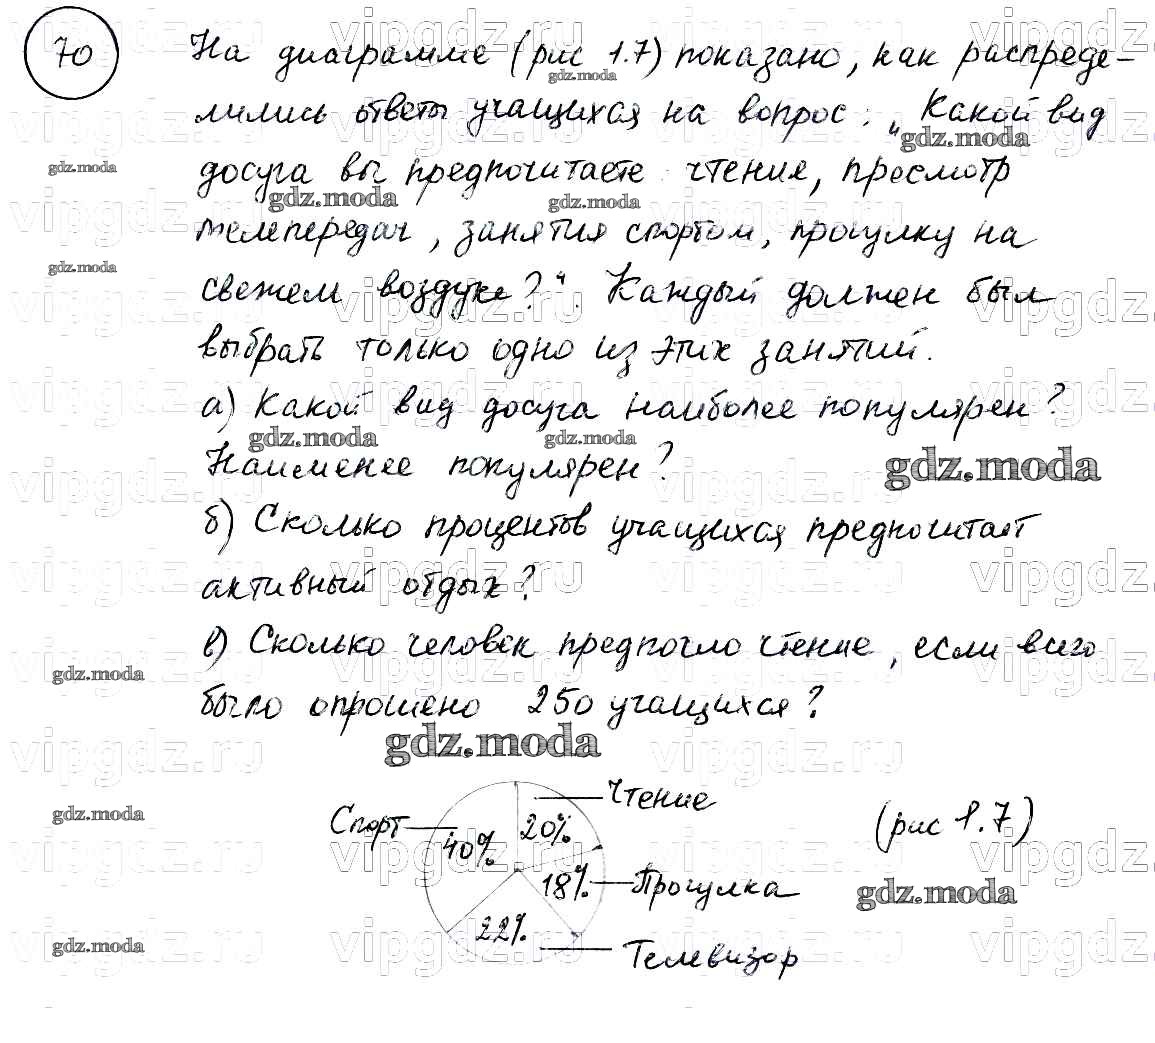 70
На диаграмме (рис 1.7) показано, как распреде-
лились ответы учащихся на вопрос: „Какой вид
досуга вы предпочитаете: чтение, просмотр
телепередач, занятия спортом, прогулку на
свежем воздухе?". Каждый должен был
выбрать только одно из этих занятий.
а) Какой вид досуга наиболее популярен?
Наименее популярен?
б) Сколько процентов учащихся предпочитает
активный отдых?
в) Сколько человек предпочло чтение, если всего
было опрошено 250 учащихся?
Чтение
Спорт
20%
40%
(рис 1.7)
18%
Прогулка
22%
Телевизор
gdz.moda
vipgdz.ru